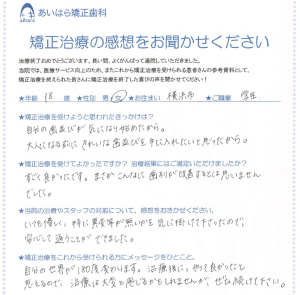 あいはら矯正歯科
矯正治療の感想をお聞かせください
治療終了おめでとうございます。長い間、よくがんばって通院していただきました。
当院では、医療サービス向上のため、またこれから矯正治療を受けられる患者さんの参考資料として、
矯正治療を終えられた皆さんに矯正治療を終了した喜びの声をお聞かせください!
★年齢 18 歳 ★性別 男・女 ★お住まい 横浜市 ★ご職業 学生
★矯正治療を受けようと思われたきっかけは?
自分の歯並びが気になり始めたから。
大人になる前にきれいな歯並びを手に入れたいと思ったから。
★矯正治療を受けてよかったですか? 治療結果にはご満足いただけましたか?
すごく良かったです。まさかこんなに歯列が改善するとは思いません
でした。
★当院の治療やスタッフの対応について、感想をおきかせください。
いつも優しく、特に異変等が無いかを気に掛けて下さったので、
安心して通うことができました。
★矯正治療をこれから受けられる方にメッセージをひとこと。
自分の世界が180度変わります。治療後に、やって良かったと
思えるので、治療は大変と感じるかもしれませんが、ぜひ続けて下さい。